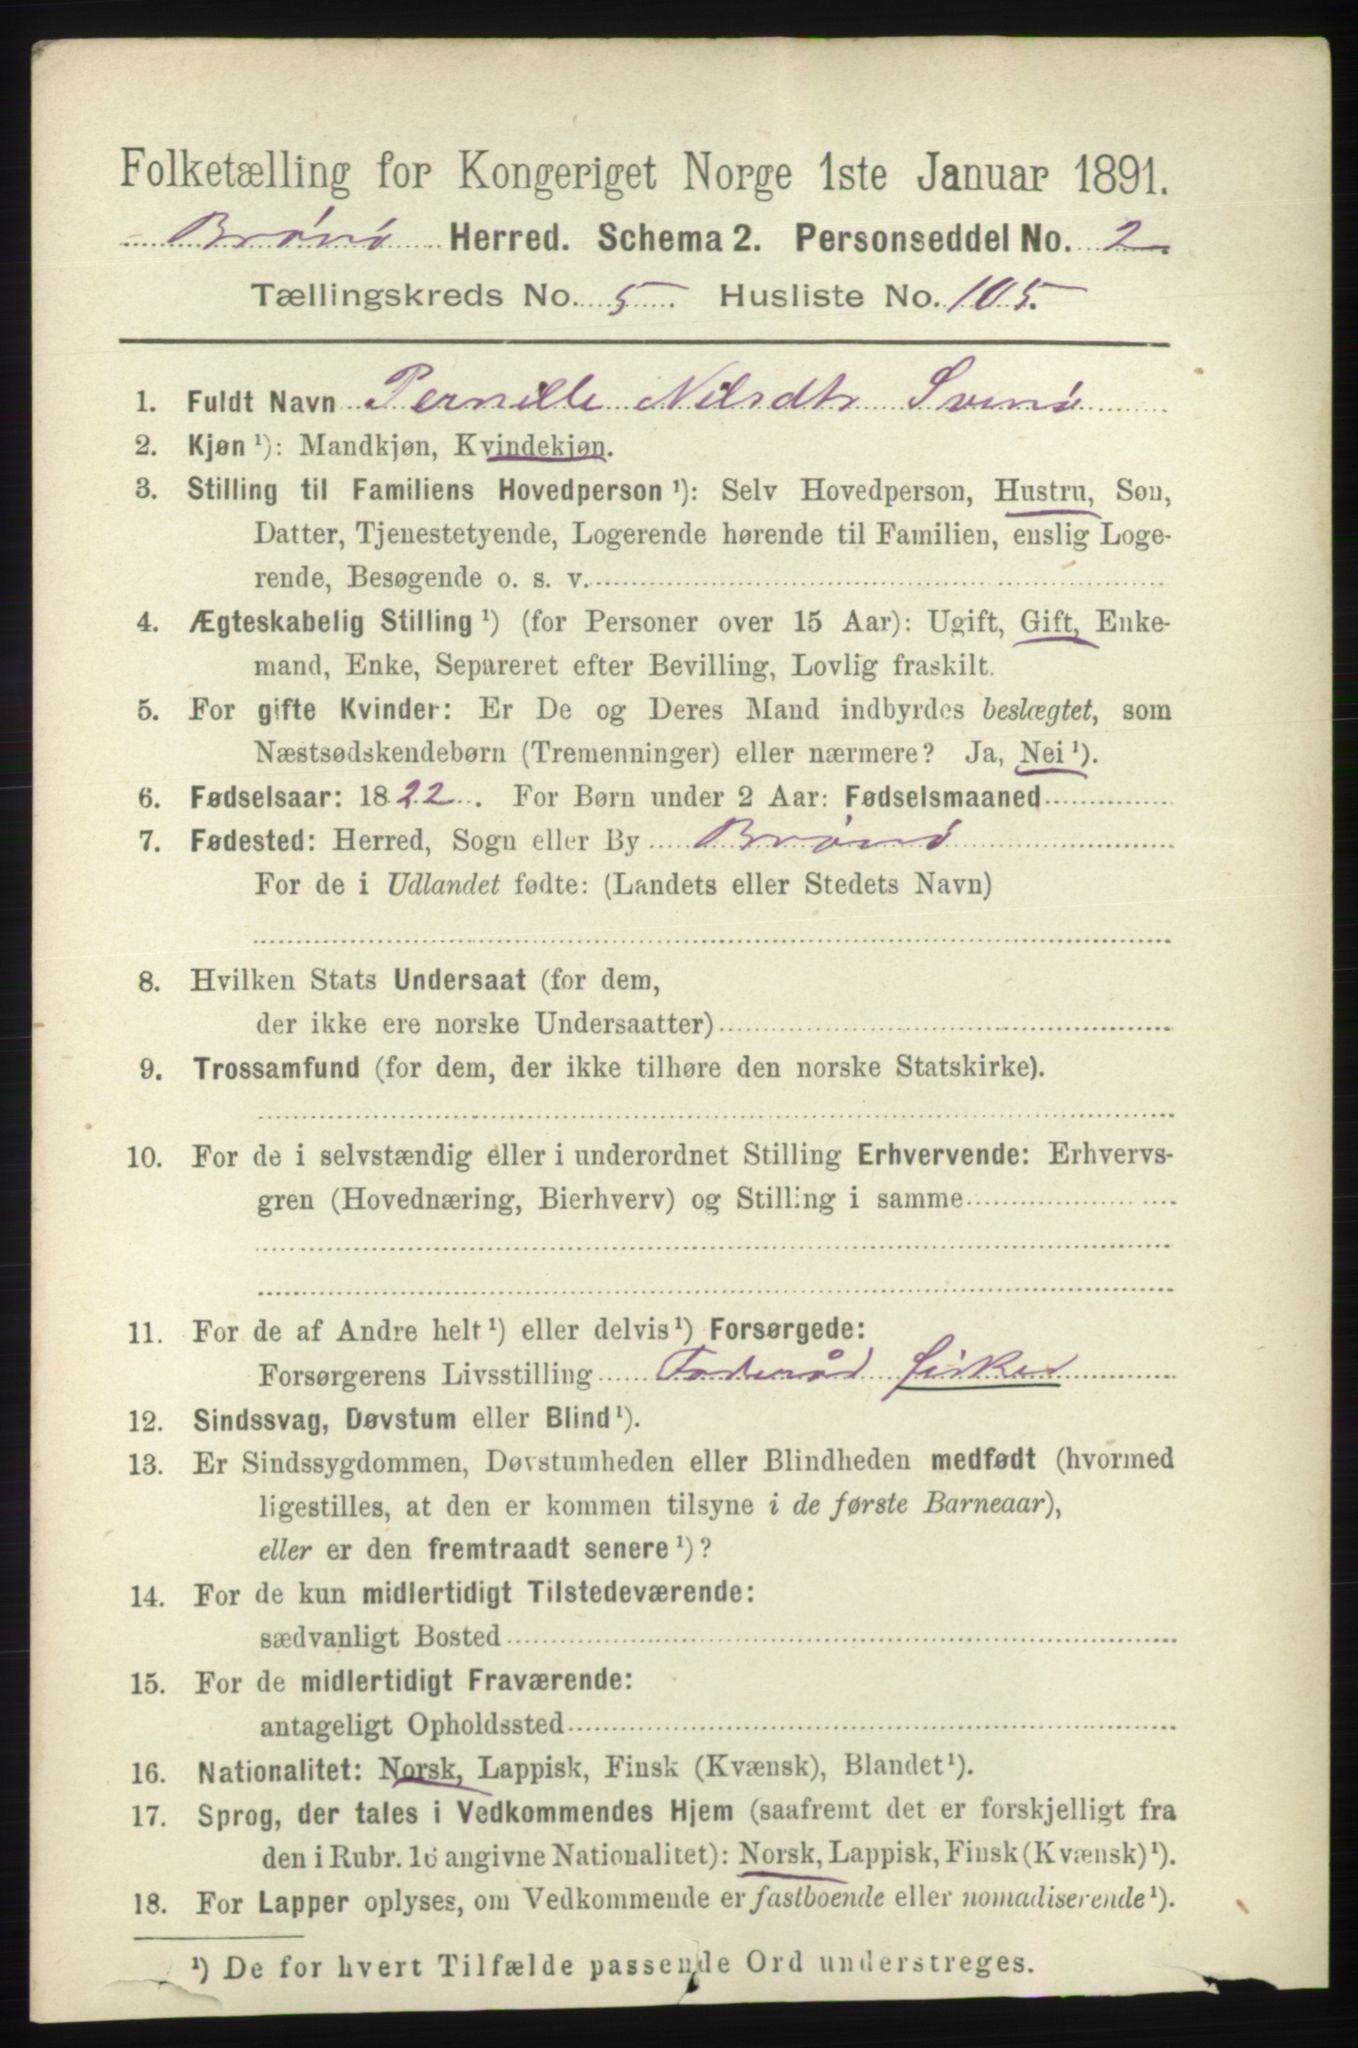 Folketælling for Kongeriget Norge 1ste Januar 1891.
Brønø Herred. Schema 2. Personseddel No. 2
Tællingskreds No. 5. Husliste No. 105.
1. Fuldt Navn Pernille Nilsdtr Svinø
2. Kjøn ¹): Mandkjøn, Kvindekjøn.
3. Stilling til Familiens Hovedperson ¹): Selv Hovedperson, Hustru, Søn,
Datter, Tjenestetyende, Logerende hørende til Familien, enslig Loge-
rende, Besøgende o. s. v.
4. Ægteskabelig Stilling ¹) (for Personer over 15 Aar): Ugift, Gift, Enke-
mand, Enke, Separeret efter Bevilling, Lovlig fraskilt.
5. For gifte Kvinder: Er De og Deres Mand indbyrdes beslægtet, som
Næstsødskendebørn (Tremenninger) eller nærmere? Ja, Nei ¹).
6. Fødselsaar: 1822. For Børn under 2 Aar: Fødselsmaaned
7. Fødested: Herred, Sogn eller By Brønø
For de i Udlandet fødte: (Landets eller Stedets Navn)
8. Hvilken Stats Undersaat (for dem,
der ikke ere norske Undersaatter)
9. Trossamfund (for dem, der ikke tilhøre den norske Statskirke).
10. For de i selvstændig eller i underordnet Stilling Erhvervende: Erhvervs-
gren (Hovednæring, Bierhverv) og Stilling i samme
11. For de af Andre helt ¹) eller delvis ¹) Forsørgede:
Forsørgerens Livsstilling Foderåd fisker
12. Sindssvag, Døvstum eller Blind ¹).
13. Er Sindssygdommen, Døvstumheden eller Blindheden medfødt (hvormed
ligestilles, at den er kommen tilsyne i de første Barneaar),
eller er den fremtraadt senere ¹)?
14. For de kun midlertidigt Tilstedeværende:
sædvanligt Bosted
15. For de midlertidigt Fraværende:
antageligt Opholdssted
16. Nationalitet: Norsk, Lappisk, Finsk (Kvænsk), Blandet ¹).
17. Sprog, der tales i Vedkommendes Hjem (saafremt det er forskjelligt fra
den i Rubr. 16 angivne Nationalitet): Norsk, Lappisk, Finsk (Kvænsk) ¹).
18. For Lapper oplyses, om Vedkommende er fastboende eller nomadiserende ¹).
¹) De for hvert Tilfælde passende Ord understreges.